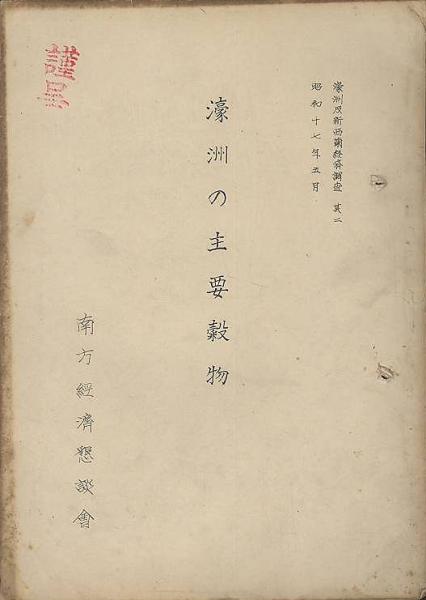 濠洲及新西蘭経済調査 其二
昭和十七年五月
濠洲の主要穀物
南方經濟懇談會
謹呈